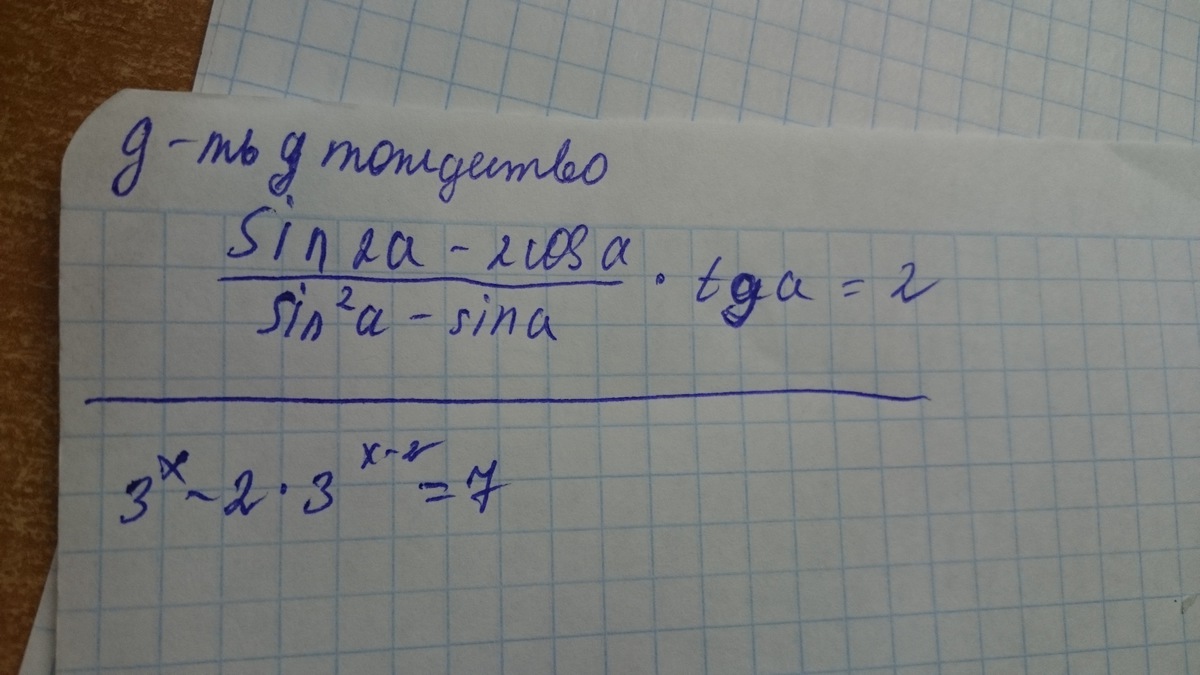 д-ть д тождество
sin 2a - 2cos a
sin²a - sin a
· tg a = 2
3^x - 2 · 3^(x-2) = 7